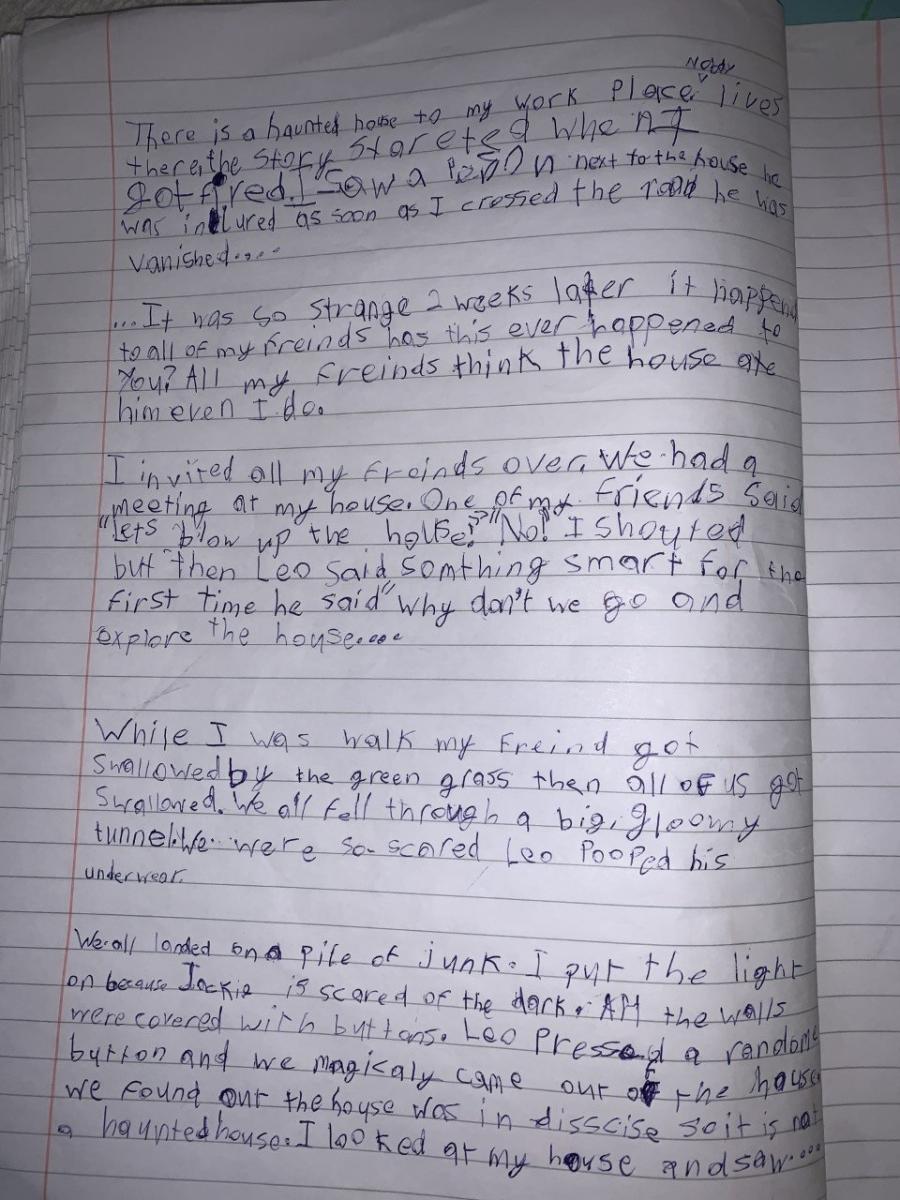 Nobdy
There is a haunted house to my work place. lives
there, the story stareted when I
got fired. I saw a person next to the house he
was injured as soon as I crossed the road he was
vanished....
...It was so strange 2 weeks later it happend
to all of my freinds has this ever happened to
you? All my freinds think the house ate
him even I do.
I invited all my freinds over, We had a
meeting at my house. One of my friends said
"lets blow up the house?" "No! I shouted
but then Leo said somthing smart for the
first time he said" why don't we go and
explore the house....
While I was walk my freind got
swallowed by the green grass then all of us got
swallowed. We all fell through a big, gloomy
tunnel. We were so scared Leo pooped his
underwear.
We all landed on a pile of junk. I put the light
on because Jackie is scared of the dark. All the walls
were covered with buttons. Leo pressed a randome
button and we magicaly came out of the house
we found out the house was in disscise so it is not
a haunted house. I looked at my house and saw.....